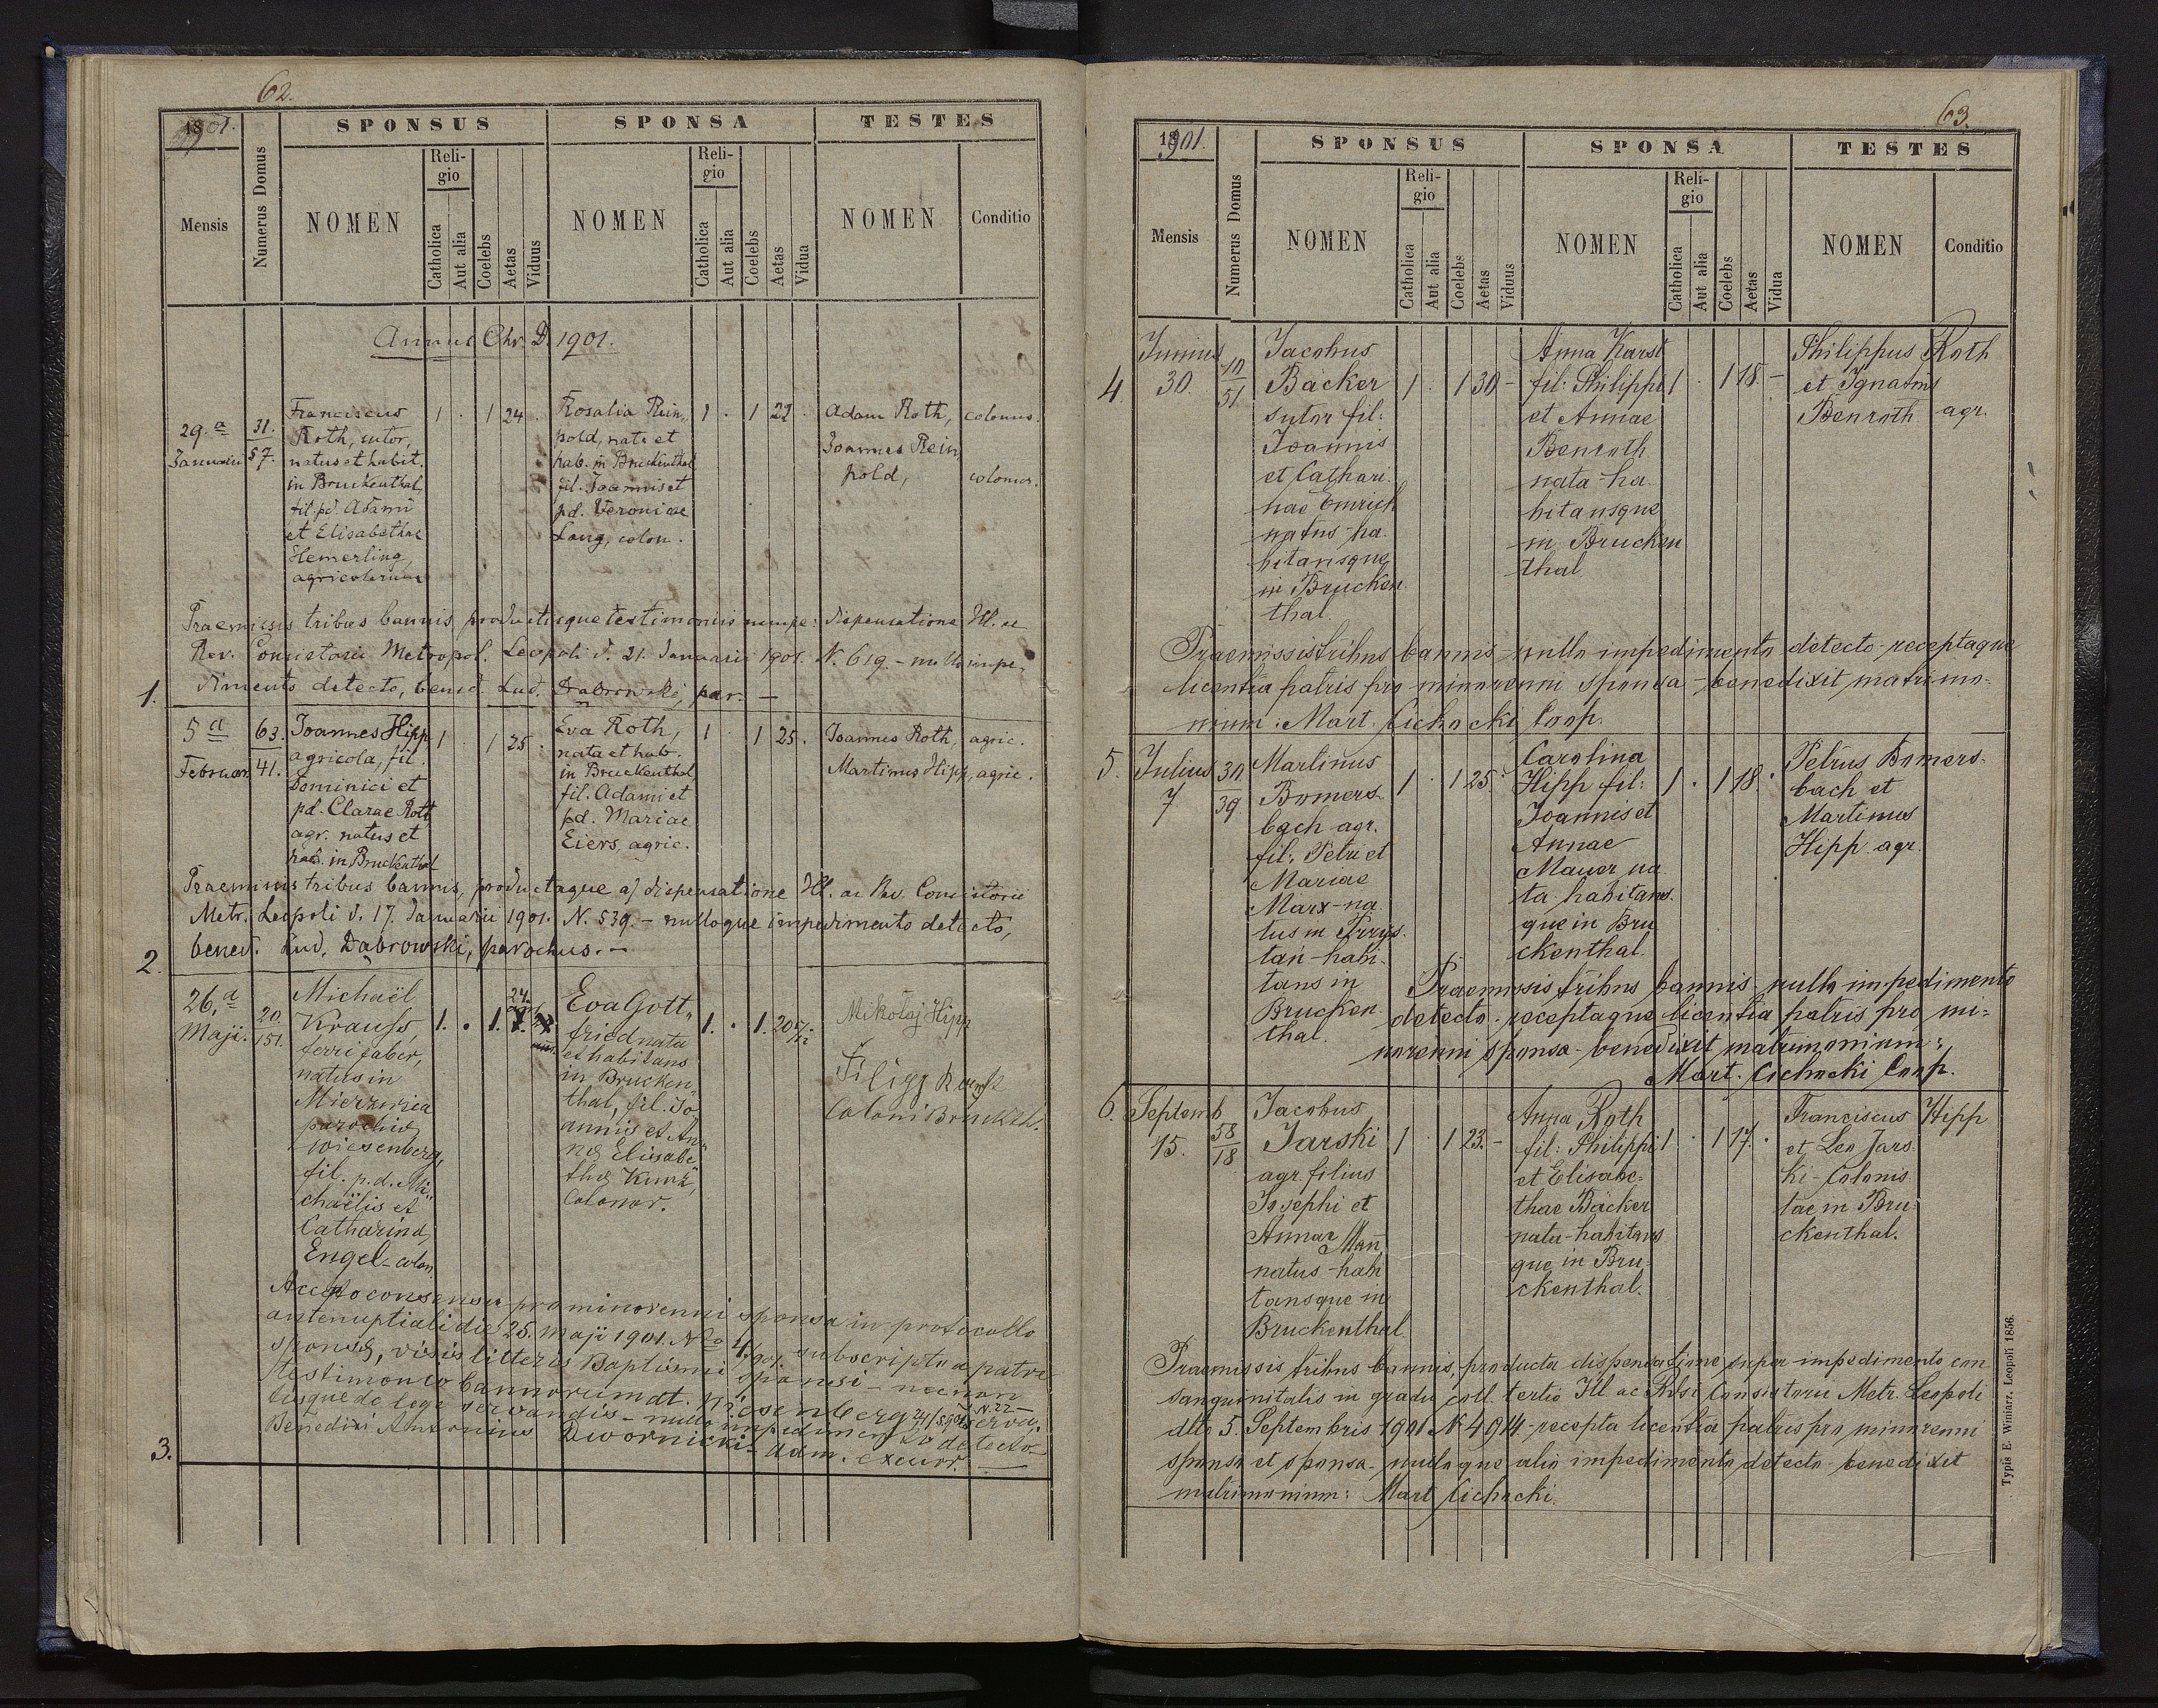 62.
1901.
SPONSUS
SPONSA
TESTES
Mensis
Numerus Domus
NOMEN
Religio
Catholica
Aut alia
Coelebs
Aetas
Viduus
NOMEN
Religio
Catholica
Aut alia
Coelebs
Aetas
Vidua
NOMEN
Conditio
Annus Chr. D. 1901.
29.a
Januarii
31.
57.
Franciscus
Roth, sutor,
natus et habit.
in Bruckenthal
fil. pd. Adami
et Elisabethae
Hemerling,
agricolarum
1 . 1 24 .
Rosalia Rein
pold, nata et
hab. in Bruckenthal
fil. Joannis et
pd. Veronicae
Lang, colon.
1 . 1 22 .
Adam Roth, colonus
Joannes Rein
pold, colonus.
Praemissis tribus bannis productisque testimoniis nempe: dispensatione Ill. ac
Rev. Consistorii Metropol. Leopoli d. 21. Januarii 1901. N. 619. - nullo impe,
dimento detecto, bened. Lud. Dabrowski, par. —
1.
5 a
Februar.
63.
41.
Joannes Hipp
agricola, fil.
Dominici et
pd. Clarae Roth
agr. natus et
hab. in Bruckenthal
1 . 1 25 .
Eva Roth,
nata et hab.
in Bruckenthal
fil. Adami et
pd. Mariae
Eiers, agric.
1 . 1 25 .
Joannes Roth, agric.
Martinus Hipp, agric.
Praemissis tribus bannis, productaque a) dispensatione Ill. ac Rev. Consistorii
Metr. Leopoli d. 17. Januarii 1901. N. 539. - nulloque impedimento detecto,
bened. Lud. Dabrowski, parochus. -
2.
26.a
Maji.
20.
151.
Michaël
Krauss,
ferri faber,
natus in
Mierzwica
parochiae
Wiesenberg,
fil. p. d. Mi
chaëlis et
Catharinae
Engel - colon.
1. . 1. 24.
Eva Gott„
fried nata
et habitans
in Brucken„
thal, fil. Jo„
annis et An„
nae Elisabe„
thae Kunz,
Colonor.
1. . 1. 20
Mikołaj Hipp
Filipp
Coloni Bruckth.
Accepto consensu pro minorenni sponsa in protocollo
antenuptiali die 25. Maji 1901. No 4/901. subscripto a patre
sponsae, visis litteris Baptismi sponsi - necnon
testimonio bannorum dt. Wiesenberg N. 22 - serva„
tisque de lege servandis - nullo impedimento detecto
Benedixi Antonius Dwornicki - adm. excurr.
3.
63.
1901.
SPONSUS
SPONSA
TESTES
Mensis
Numerus Domus
NOMEN
Religio
Catholica
Aut alia
Coelebs
Aetas
Viduus
NOMEN
Religio
Catholica
Aut alia
Coelebs
Aetas
Vidua
NOMEN
Conditio
4.
Junius
30.
10
51
Jacobus
Bäcker
sutor fil:
Joannis
et Cathari
nae Emrich
natus - ha
bitansque
in Brucken
thal
1 . 1 30 -
Anna Karst
fil: Philippi
et Annae
Benroth
nata - ha
bitansque
in Brucken
thal
1 . 1 18. -
Philippus Roth
et Ignatius
Benroth agr.
Praemissis tribus bannis - nullo impedimento detecto - receptaque
licentia patris pro minorenni sponsa - benedixit matrimo-
nium: Mart. Cichocki Coop.
5.
Julius
7
30
39
Martinus
Bomers
bach agr.
fil: Petri et
Mariae
Marx - na
tus in Przys
tań - habi
tans in
Brucken
thal.
1 . 1 25 .
Carolina
Hipp fil:
Joannis et
Annae
Mauer na
ta - habitans
que in Bru
ckenthal.
1 . 1 18 .
Petrus Bomers-
bach et
Martinus
Hipp. agr.
Praemissis tribus bannis - nullo impedimento
detecto - receptaque licentia patris pro mi-
norenni sponsa - benedixit matrimonium:
Mart. Cichocki Coop.
6.
Septemb
15.
58
18
Jacobus
Jarski
agr. filius
Josephi et
Annae Mann
natus - habi
tansque in
Bruckenthal
1 . 1 23. -
Anna Roth
fil: Philippi
et Elisabe-
thae Bäcker
nata - habitans
que in Bru
ckenthal.
1 . 1 17. .
Franciscus Hipp
et Leo Jars
ki - Colonis
tae in Bru
ckenthal.
Praemissis tribus bannis, producta dispensatione super impedimento con
sanguinitatis in gradu coll. tertio Ill ac Rdssi Consistorii Metr. Leopoli
dto 5. Septembris 1901 N 4914 - recepta licentia patris pro minorenni
sponso et sponsa - nulloque alio impedimento detecto - benedixit
matrimonium: Mart Cichocki.
Typis E. Winiarz. Leopoli 1856.